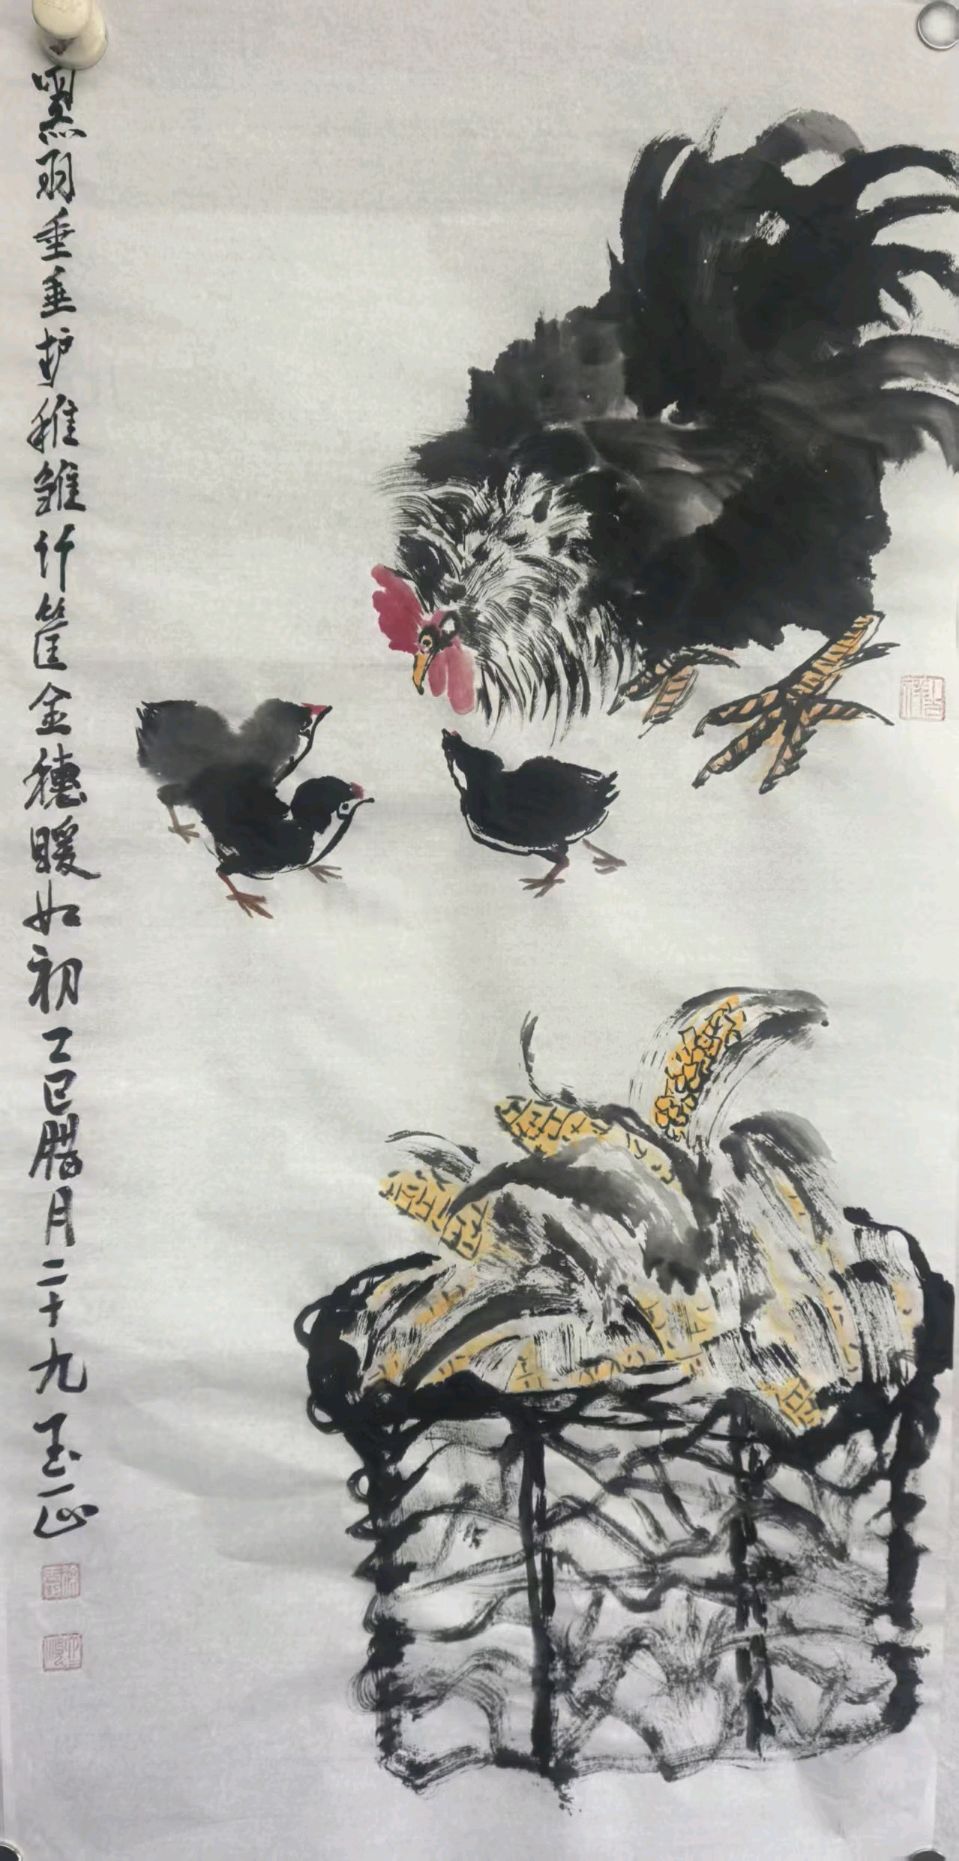 黑羽垂垂护稚雏竹筐金穗暖如初乙巳腊月二十九玉山